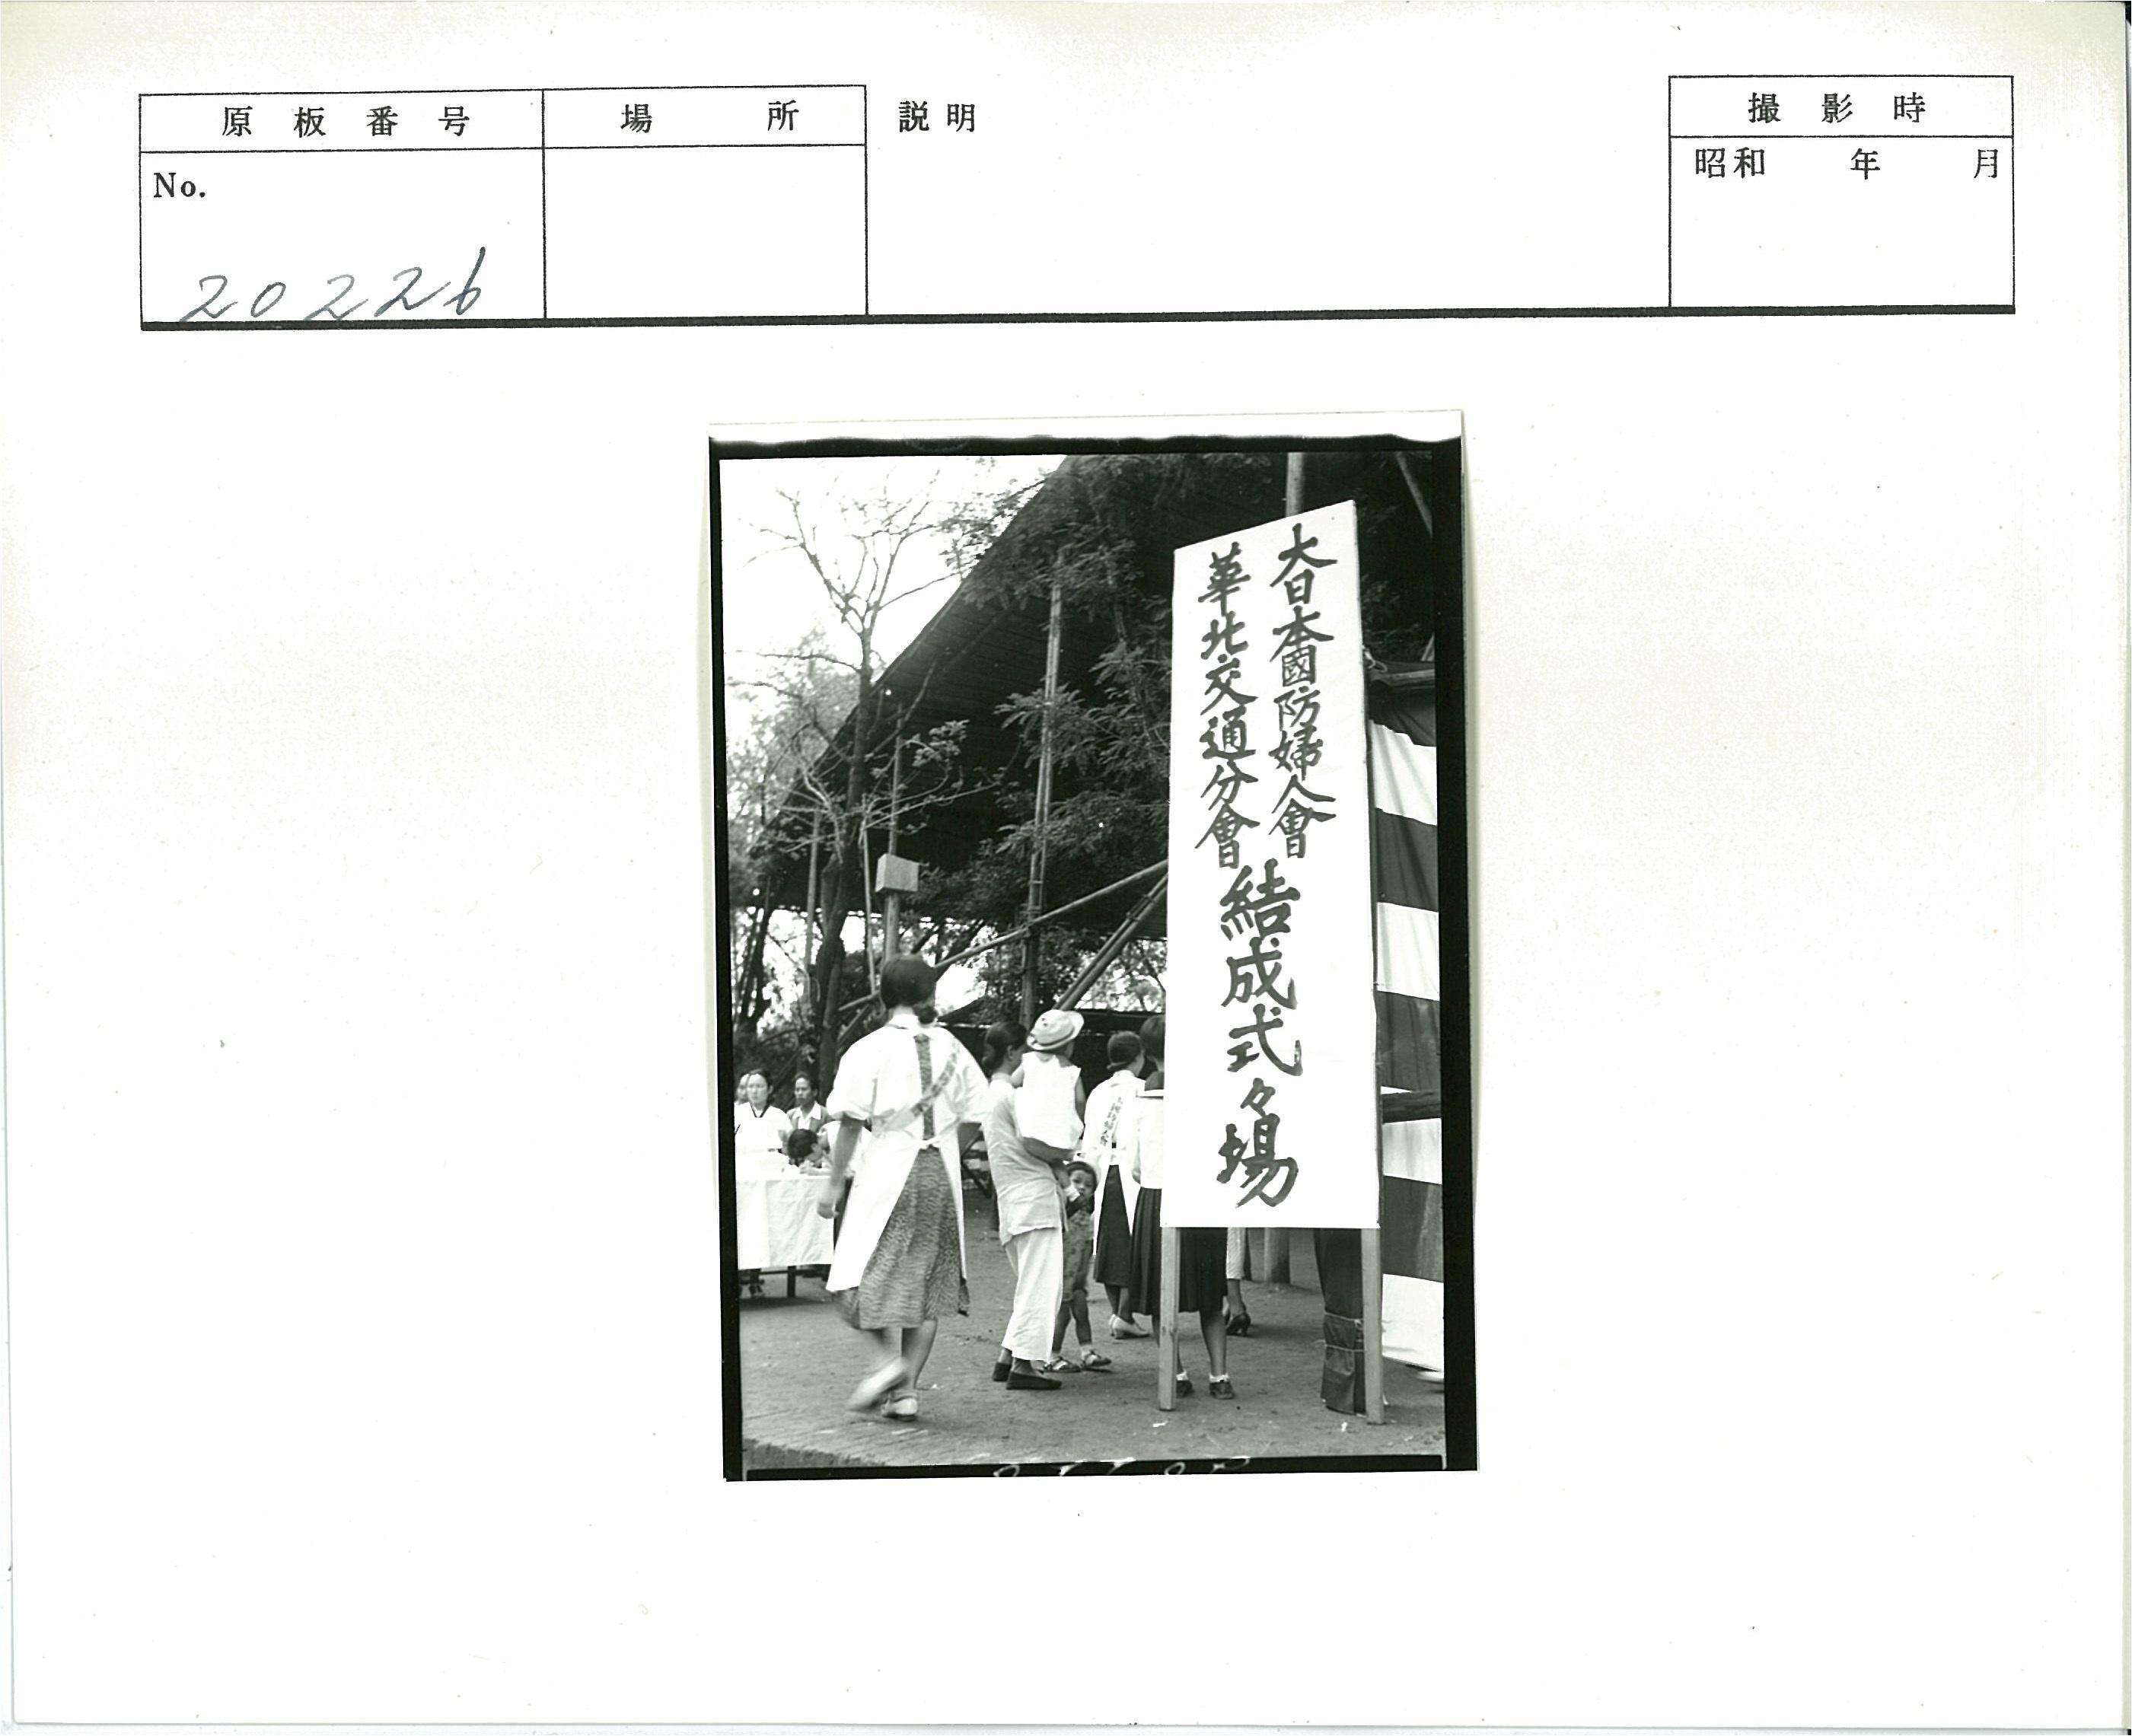 原板番号
場所
説明
撮影時
No.
20226
昭和 年 月
大日本國防婦人會
華北交通分會
結成式々場